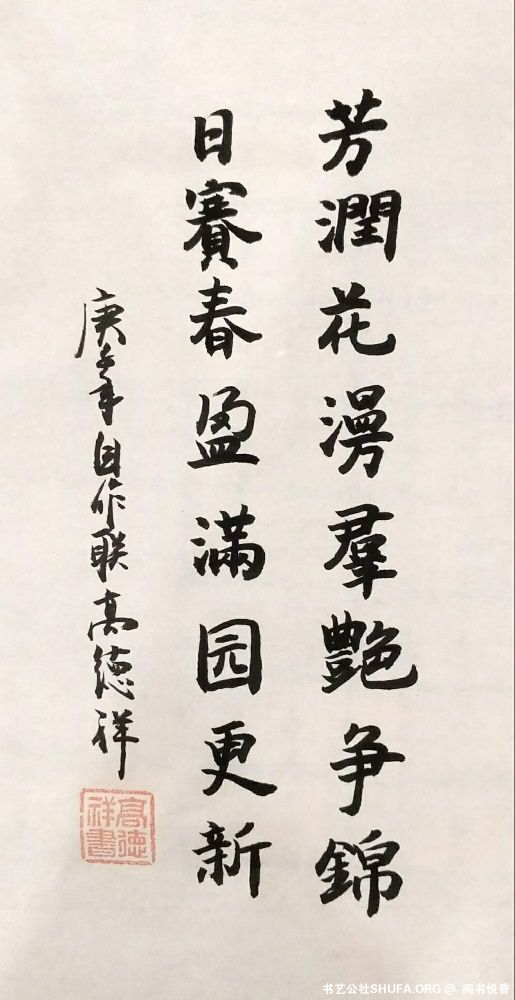 芳潤花漫羣艷争錦
日賽春盈滿园更新
庚子年自作联高德祥
高德祥書
书艺公社SHUFA.ORG @ 闻书悦香